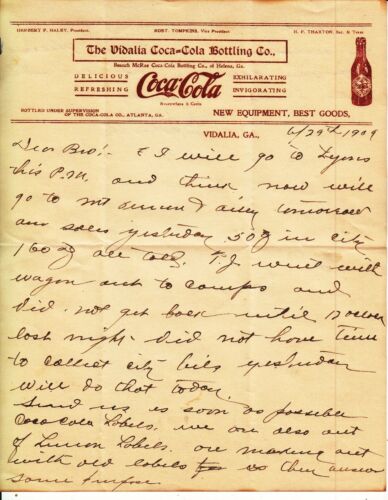 HERBERT P. HALEY, President.
ROBT. TOMPKINS, Vice President
H. P. THAXTON, Sec. & Treas.
The Vidalia Coca=Cola Bottling Co.,
Branch McRae Coca-Cola Bottling Co., of Helena, Ga.
DELICIOUS
REFRESHING
Coca-Cola
EXHILARATING
INVIGORATING
Everywhere 5 Cents
BOTTLED UNDER SUPERVISION
OF THE COCA-COLA CO., ATLANTA, GA.
NEW EQUIPMENT, BEST GOODS,
VIDALIA, GA., 6/29th 1909
Dear Bro:- I will go to Lyons
this P.M. and think now will
go to mt and tomorrow
our sales yesterday 50 in city
160 all told. T.J. went with
wagon out to camps and
did not get back until
last night. Did not have time
to collect city bills yesterday
will do that today.
Send us as soon as possible
Coca Cola Labels. we are also out
of Lemon Labels. are making out
with old labels as they answer
same purpose